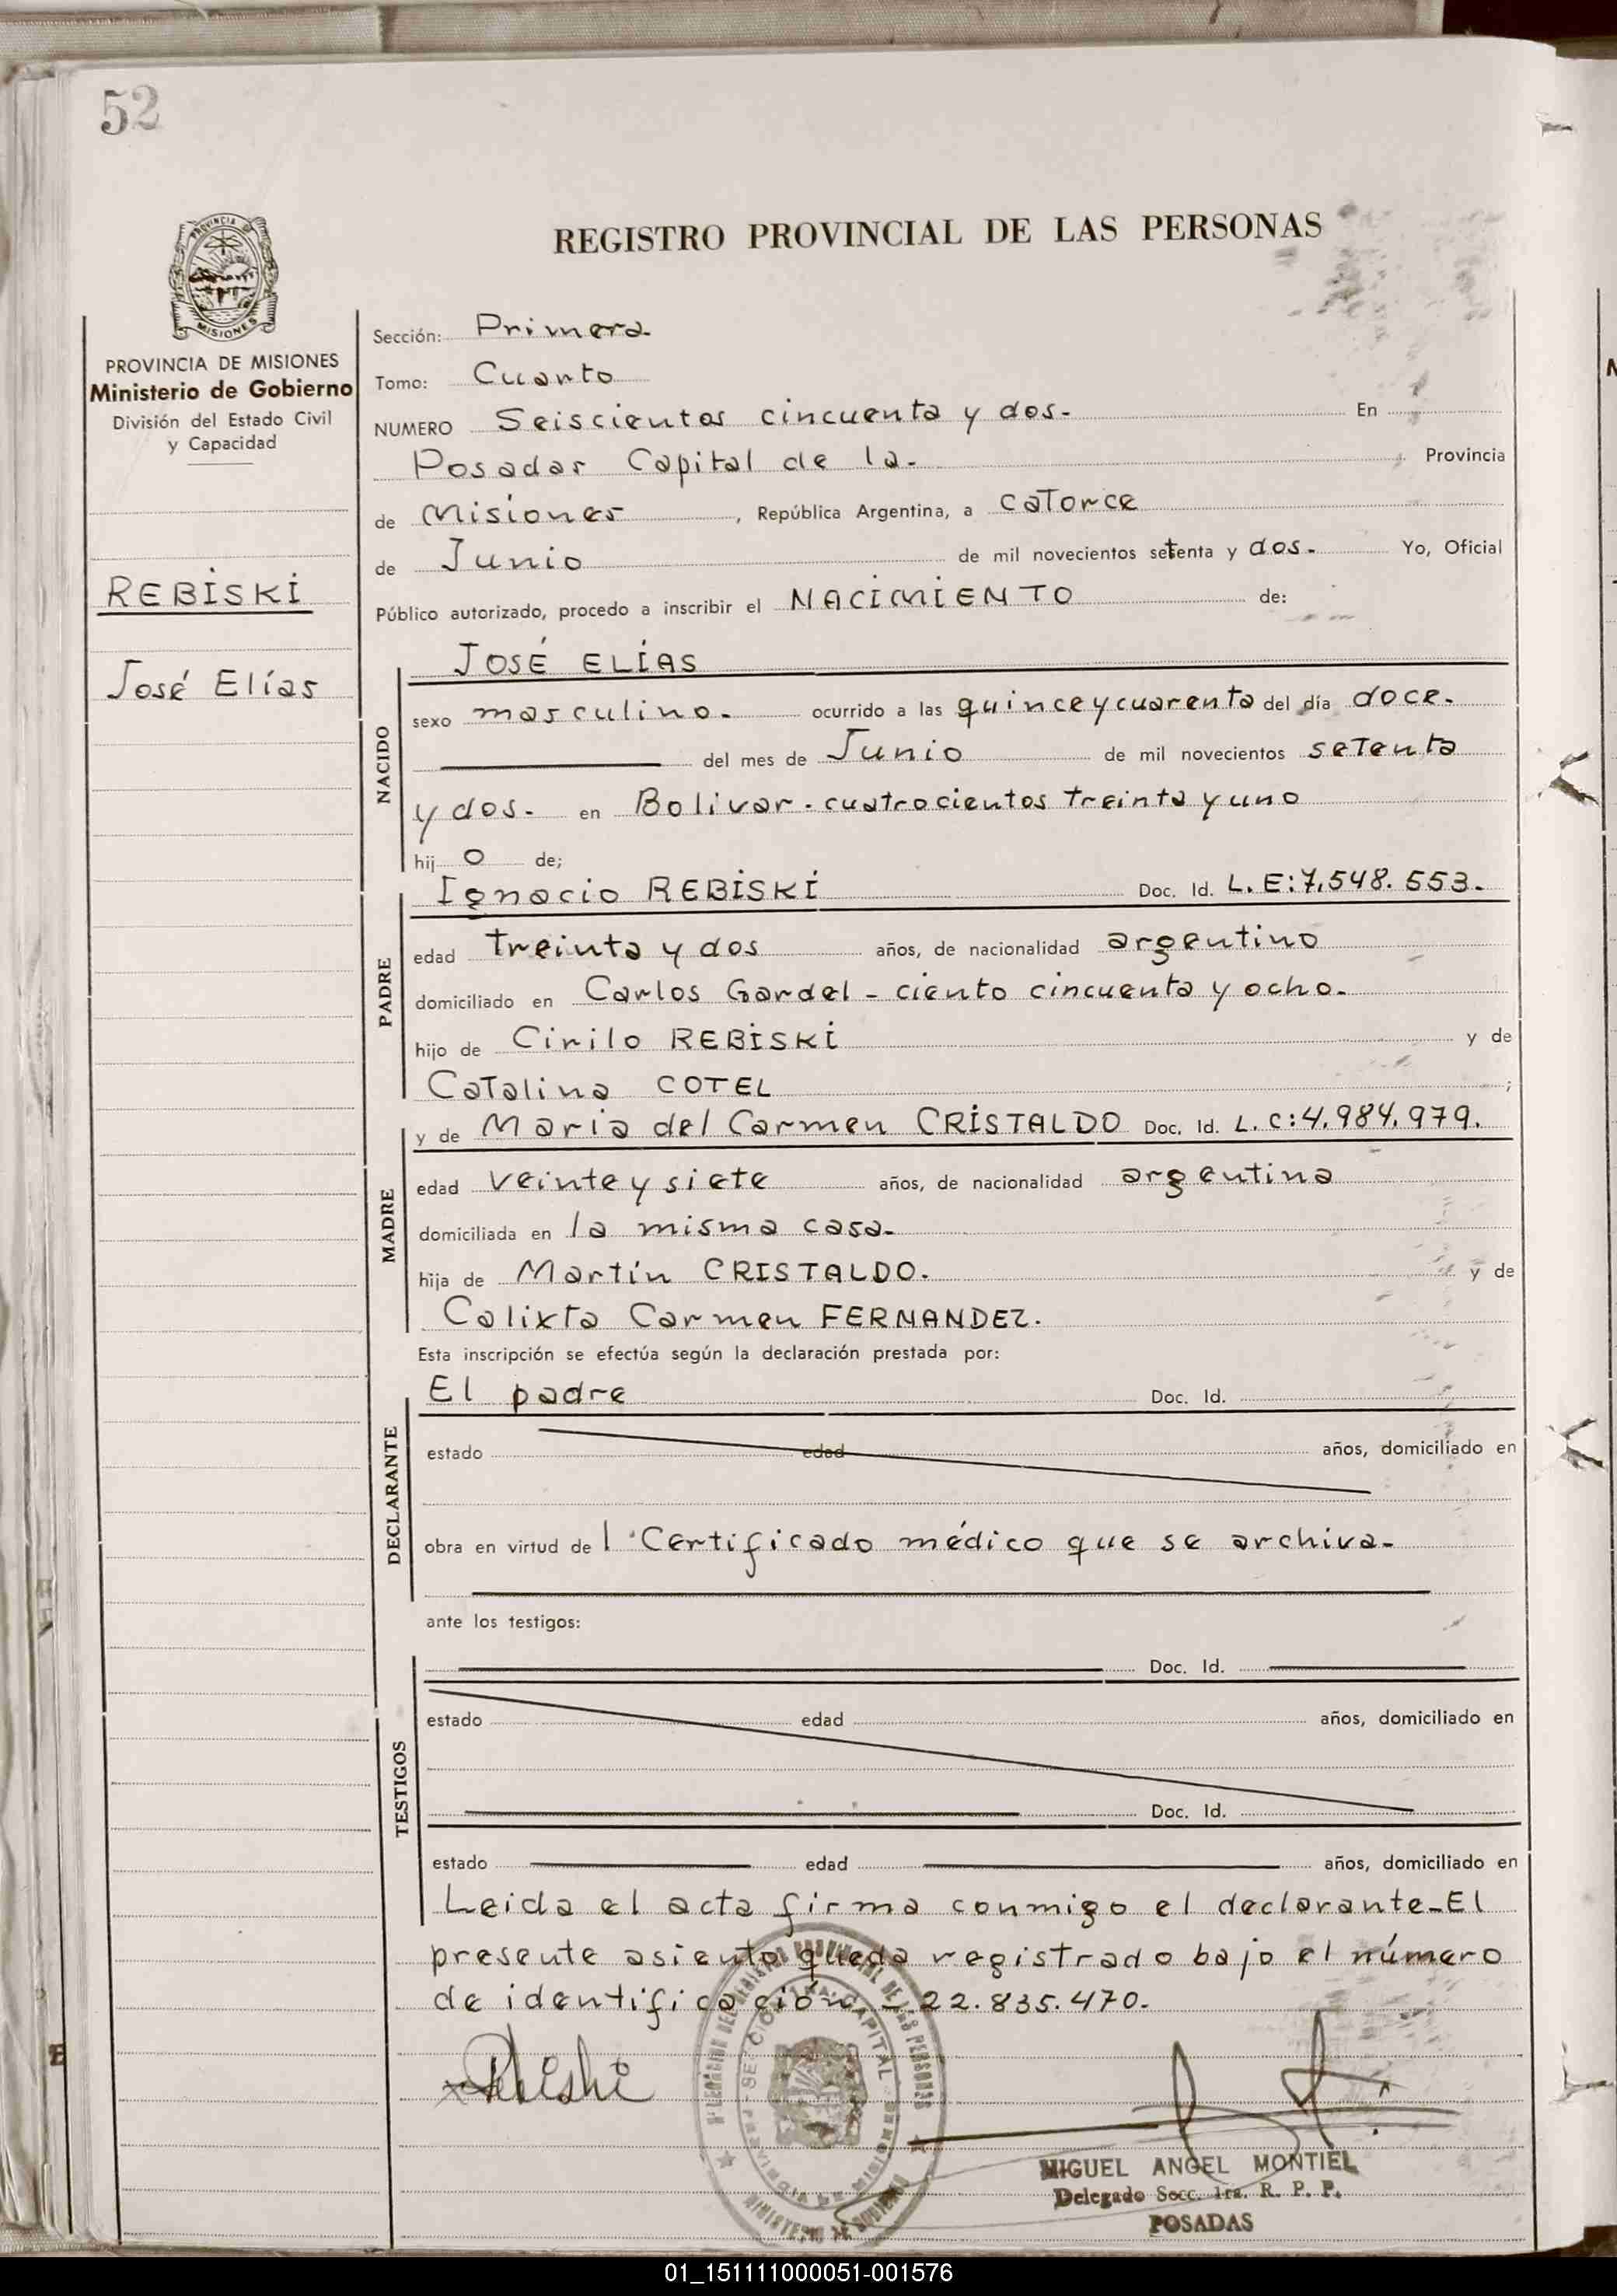 52
REGISTRO PROVINCIAL DE LAS PERSONAS
PROVINCIA
MISIONES
PROVINCIA DE MISIONES
Ministerio de Gobierno
División del Estado Civil
y Capacidad
REBISKI
José Elías
Sección: Primera
Tomo: Cuarto
NUMERO Seiscientos cincuenta y dos- En
Posadas Capital de la- Provincia
de Misiones, República Argentina, a catorce
de Junio de mil novecientos setenta y dos- Yo, Oficial
Público autorizado, procedo a inscribir el NACIMIENTO de:
JOSÉ ELÍAS
NACIDO
sexo masculino- ocurrido a las quince y cuarenta del día doce-
del mes de Junio de mil novecientos setenta
y dos- en Bolivar - cuatrocientos treinta y uno
hij o de;
Ignacio REBISKI Doc. Id. L. E: 7.548.553-
PADRE
edad treinta y dos años, de nacionalidad argentino
domiciliado en Carlos Gardel - ciento cincuenta y ocho-
hijo de Cirilo REBISKI y de
Catalina COTEL ;
y de Maria del Carmen CRISTALDO Doc. Id. L. C: 4.984.979.
MADRE
edad veinte y siete años, de nacionalidad argentina
domiciliada en la misma casa-
hija de Martín CRISTALDO. y de
Calixta Carmen FERNANDEZ.
Esta inscripción se efectúa según la declaración prestada por:
El padre Doc. Id.
DECLARANTE
estado edad años, domiciliado en
obra en virtud de l Certificado médico que se archiva-
ante los testigos:
Doc. Id.
TESTIGOS
estado edad años, domiciliado en
Doc. Id.
estado edad años, domiciliado en
Leida el acta firma conmigo el declarante-El
presente asiento queda registrado bajo el número
de identificación - 22.835.470-
MIGUEL ANGEL MONTIEL
Delegado Secc. 1ra. R. P. P.
POSADAS
01_151111000051-001576